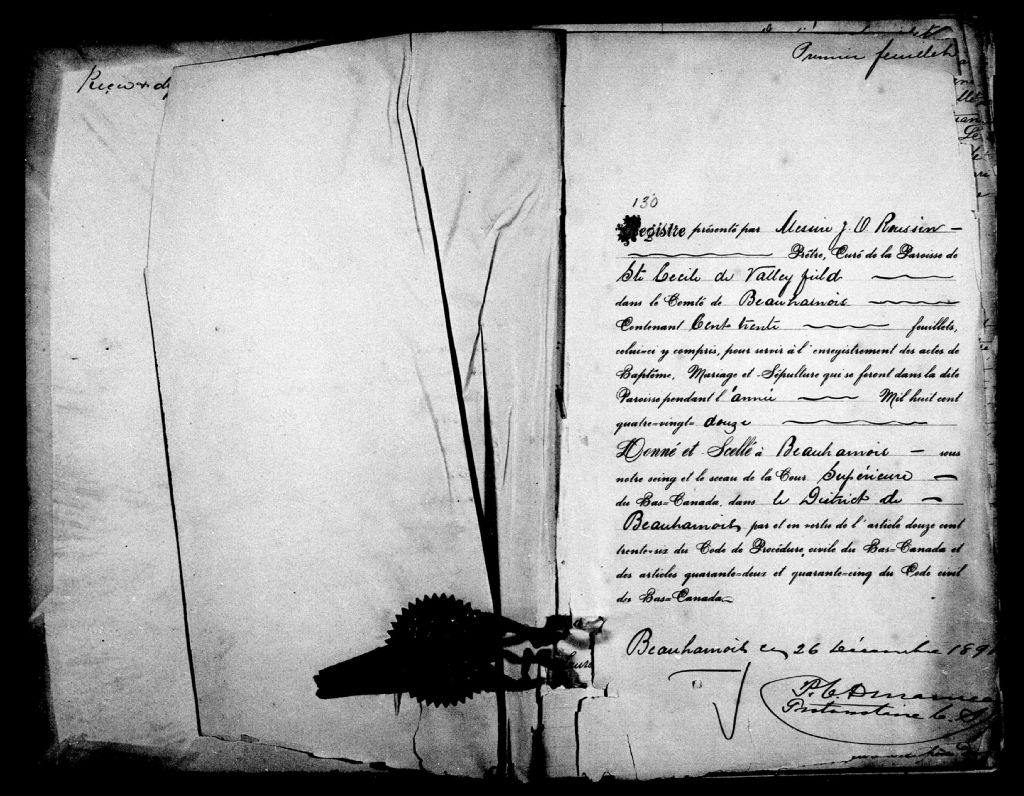 Premier feuillet
130
Registre présenté par Messire J. O. Roussin
Prêtre, Curé de la Paroisse de
Ste Cecile de Valleyfield
dans le Comté de Beauharnois
Contenant Cent trente feuillets,
celui-ci y compris, pour servir à l'enregistrement des actes de
Baptême, Mariage et Sépulture qui se feront dans la dite
Paroisse pendant l'année Mil huit cent
quatre-vingt-douze
Donné et Scellé à Beauharnois sous
notre seing et le sceau de la Cour Supérieure
du Bas-Canada, dans le District de
Beauharnois, par et en vertu de l'article douze cent
trente-six du Code de Procédure, civile du Bas-Canada et
des articles quarante-deux et quarante-cinq du Code civil
du Bas-Canada
Beauharnois ce 26 décembre 189